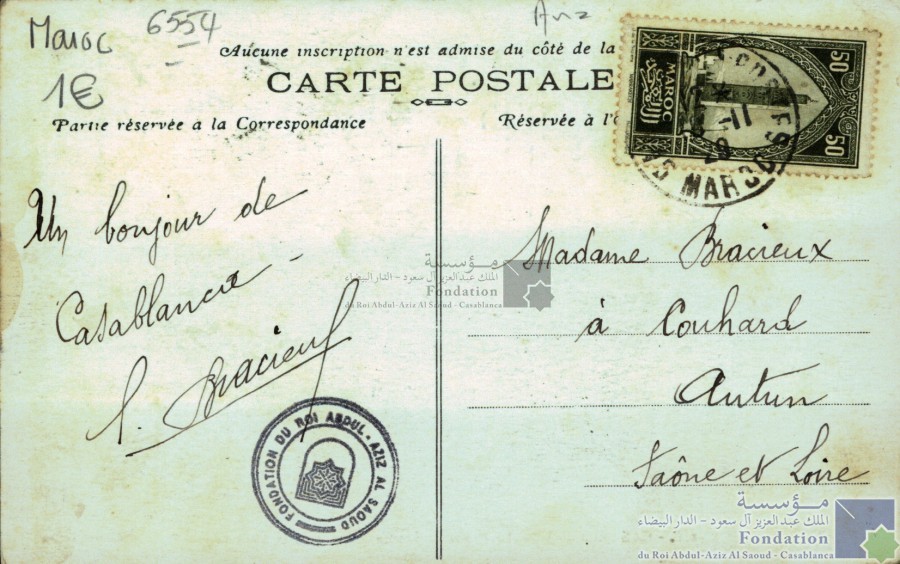 Maroc 6554
1€
Aucune inscription n'est admise du côté de la
CARTE POSTALE
Partie réservée à la Correspondance
Réservée à l'
50 50
MAROC
MAROC
Un bonjour de
Casablanca
Bracieux
Madame Bracieux
à Couhard
Autun
Saône et Loire
مؤسسة
الملك عبد العزيز آل سعود - الدار البيضاء
Fondation
du Roi Abdul-Aziz Al Saoud - Casablanca
FONDATION DU ROI ABDUL-AZIZ AL SAOUD
مؤسسة
الملك عبد العزيز آل سعود - الدار البيضاء
Fondation
du Roi Abdul-Aziz Al Saoud - Casablanca